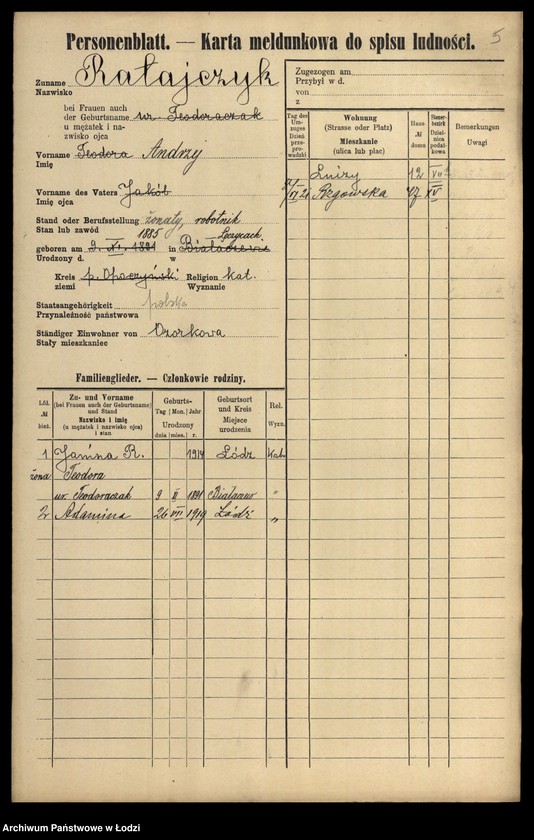 5
Personenblatt. — Karta meldunkowa do spisu ludności.
Zuname Ratajczyk
Nazwisko
bei Frauen auch
der Geburtsname ur. Teodorczak
u mężatek i na-
zwisko ojca
Vorname Teodora Andrzej
Imię
Vorname des Vaters Jakób
Imię ojca
Stand oder Berufsstellung żonaty, robotnik
Stan lub zawód 1885 Łęczycach
geboren am 9. 1891 in
Urodzony d. w
Kreis p. Opoczyński Religion kat.
ziemi Wyznanie
Staatsangehörigkeit polska
Przynależność państwowa
Ständiger Einwohner von Ozorkowa
Stały mieszkaniec
Familienglieder. — Członkowie rodziny.
Lfd. № bież.
Zu- und Vorname
(bei Frauen auch der Geburtsname)
und Stand
Nazwisko i imię
(u mężatek i nazwisko ojca)
i stan
Geburts-
Tag Mon. Jahr
Urodzony
dnia mies. r.
Geburtsort
und Kreis
Miejsce
urodzenia
Rel.
Wyzn.
1 Janina R. 1914 Łódź Kat.
żona Teodora
ur. Teodorczak 9 II 1891 "
2 Adamina 26 VII 1919 Łódź "
Zugezogen am
Przybył w d.
von
z
Tag des
Um-
zuges
Dzień
prze-
prowadzki
Wohnung
(Strasse oder Platz)
Mieszkanie
(ulica lub plac)
Haus
№
domu
Steuer-
bezirk
Dziel-
nica
podat-
kowa
Bemerkungen
Uwagi
Luizy 12 VII
VI 21 Rzgowska 47 XV
Archiwum Państwowe w Łodzi